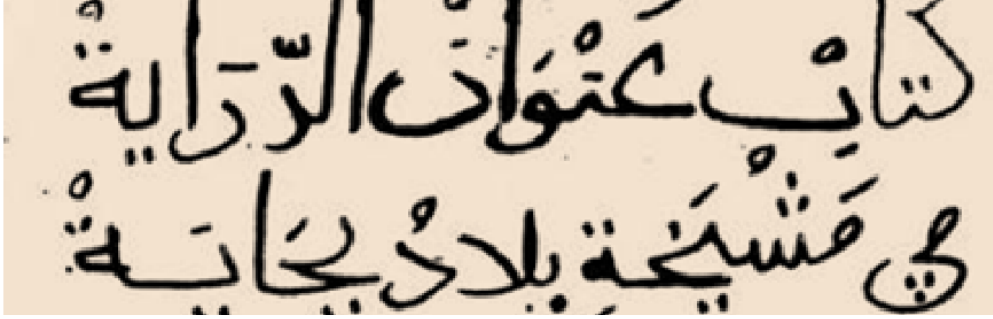 كتابْ عَنْوَانْ الدّرَايةْ
في مَشْيَخَة بلادْ بجَايَةْ